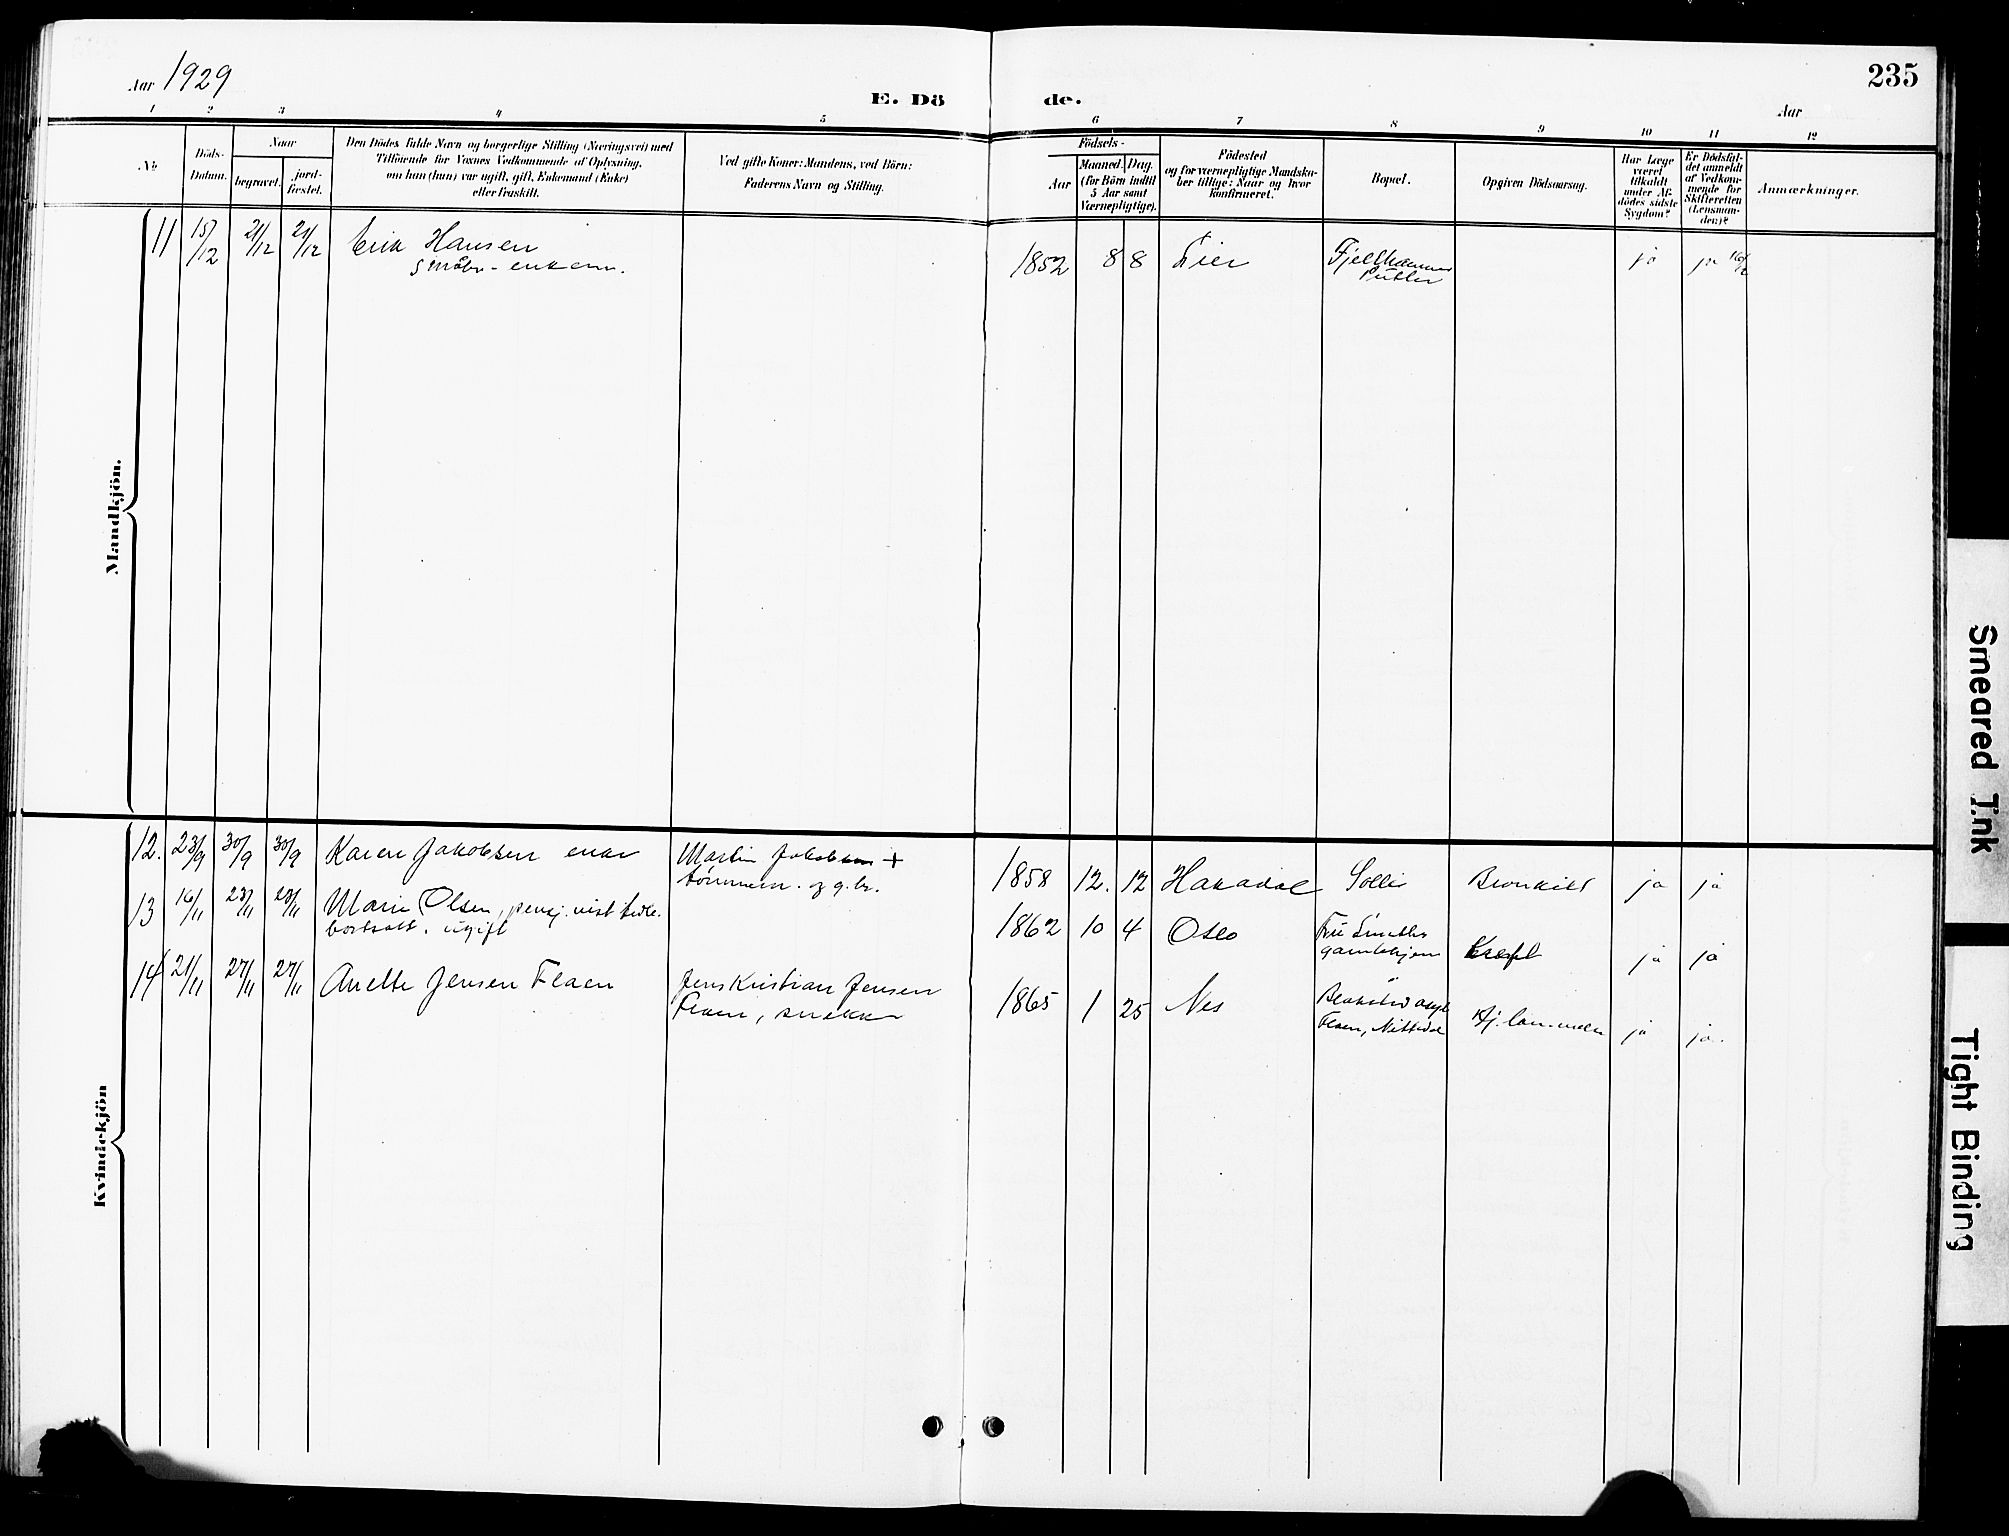 Aar 1929
E. Dö
de.
235
Aar
1 2 3 4 5 6 7 8 9 10 11 12
No
Döds-
Datum.
Naar
begravet.
jord-
fæstet.
Den Dödes fulde Navn og borgerlige Stilling (Næringsvei) med
Tilföiende for Voxnes Vedkommende af Oplysning,
om han (hun) var ugift, gift, Enkemand (Enke)
eller fraskilt.
Ved gifte Koner: Mandens, ved Börn:
Faderens Navn og Stilling.
Födsels-
Aar
Maaned. Dag.
(for Börn indtil
5 Aar samt
Værnepligtige).
Födested
og for værnepligtige Mandska-
ber tillige: Naar og hvor
konfirmeret.
Bopæl.
Opgiven Dödsaarsag.
Har Læge
været
tilkaldt
under Af-
dödes sidste
Sygdom?
Er Dödsfal-
det anmeldt
af Vedkom-
mende for
Skifteretten
(Lensman-
den)?
Anmærkninger.
Mandkjön.
11 15/12 21/12 21/12 Erik Hansen 1852 8 8 Lier Fjellhammer ja ja 16/12
småbr- enkem.
Kvindekjön
12. 23/9 30/9 30/9 Karen Jakobsen enke Martin Jakobsen +
tömmerm. og g.br.
1858 12. 12 Hakadal Solli Bronkitt ja ja
13 16/11 23/11 23/11 Marie Olsen, pensj.
ugift
1862 10 4 Oslo Fru Smiths
gamlehjem Kreft ja ja
14 21/11 27/11 27/11 Anette Jensen Flaen Jens Kristian Jensen
Flaen, snekker
1865 1 25 Nes Blakstad asyl
Flaen, Nittedal ja ja.
Smeared Ink
Tight Binding